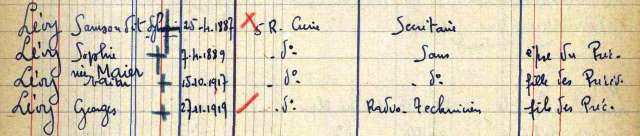 Lévy Samson dit 25.4.1887 5 R. Curie Secrétaire
Lévy Sophie 7.4.1889 d° Sans épse du Préc.
née Maier
Lévy 15.10.1917 d° d° fille des Précéd.
Lévy Georges 27.11.1919 d° Radio-Technicien fils des Préc.